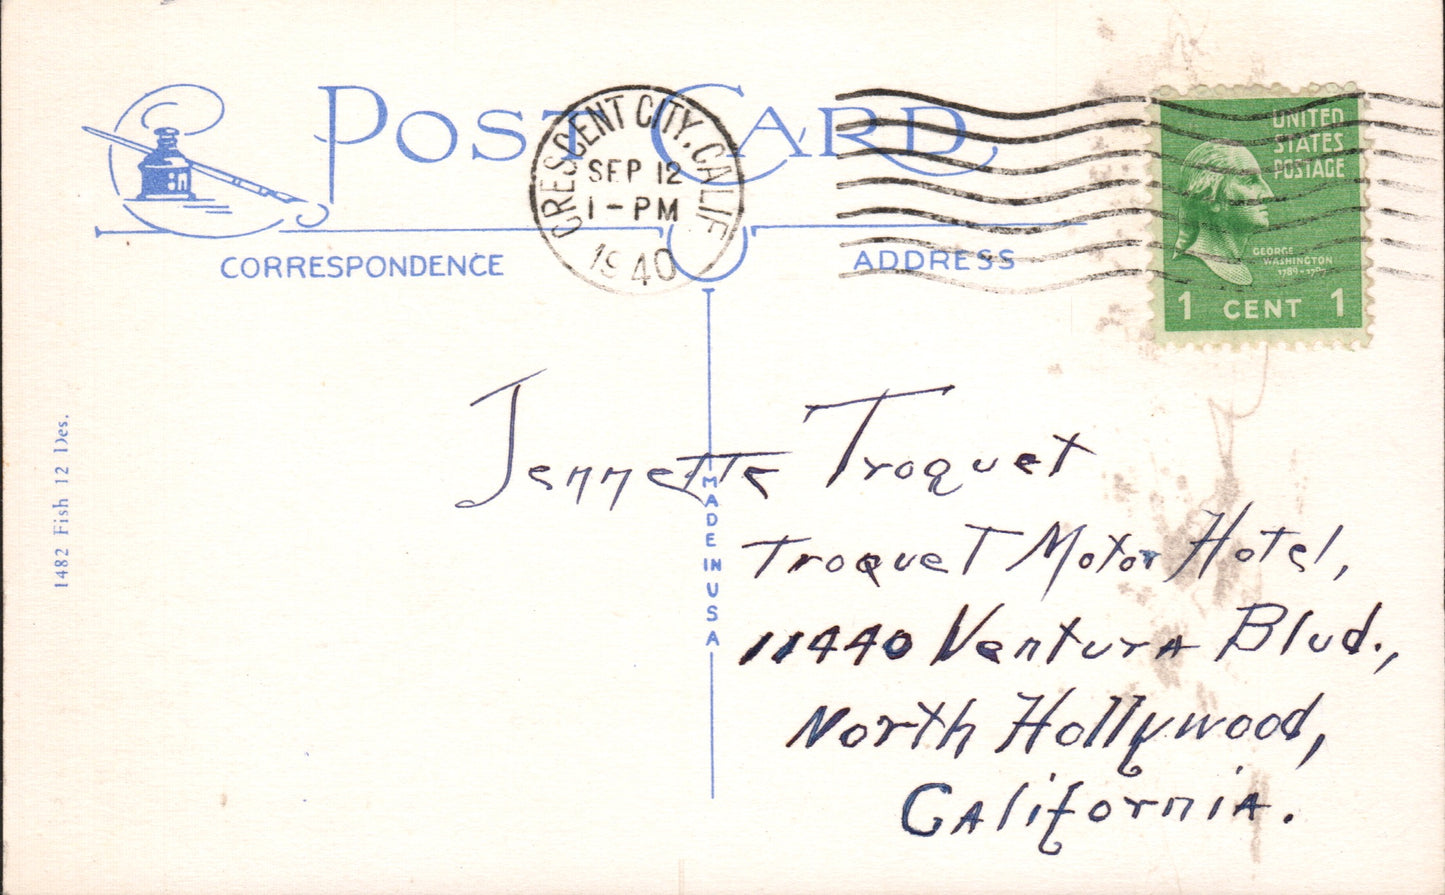 POST CARD
CRESCENT CITY, CALIF.
SEP 12
1-PM
1940
UNITED
STATES
POSTAGE
GEORGE
WASHINGTON
1 CENT 1
CORRESPONDENCE
ADDRESS
Jennette Troquet
Troquet Motor Hotel,
11440 Ventura Blvd.,
North Hollywood,
California.
MADE IN USA
1482 Fish 12 Des.